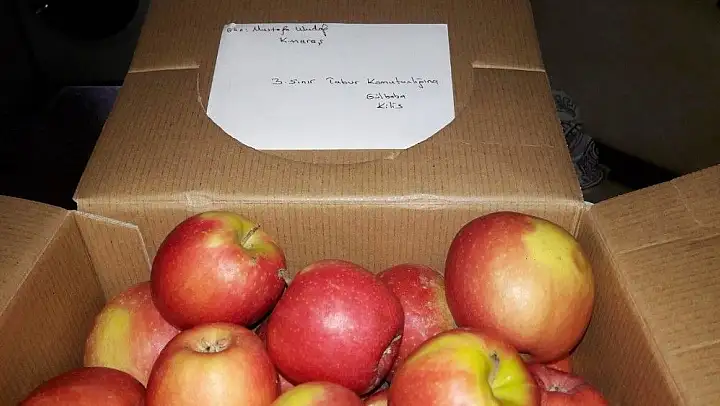 Mustafa
K.maraş
3. Sınır Tabur Komutanlığına
Gülbaba
Kilis